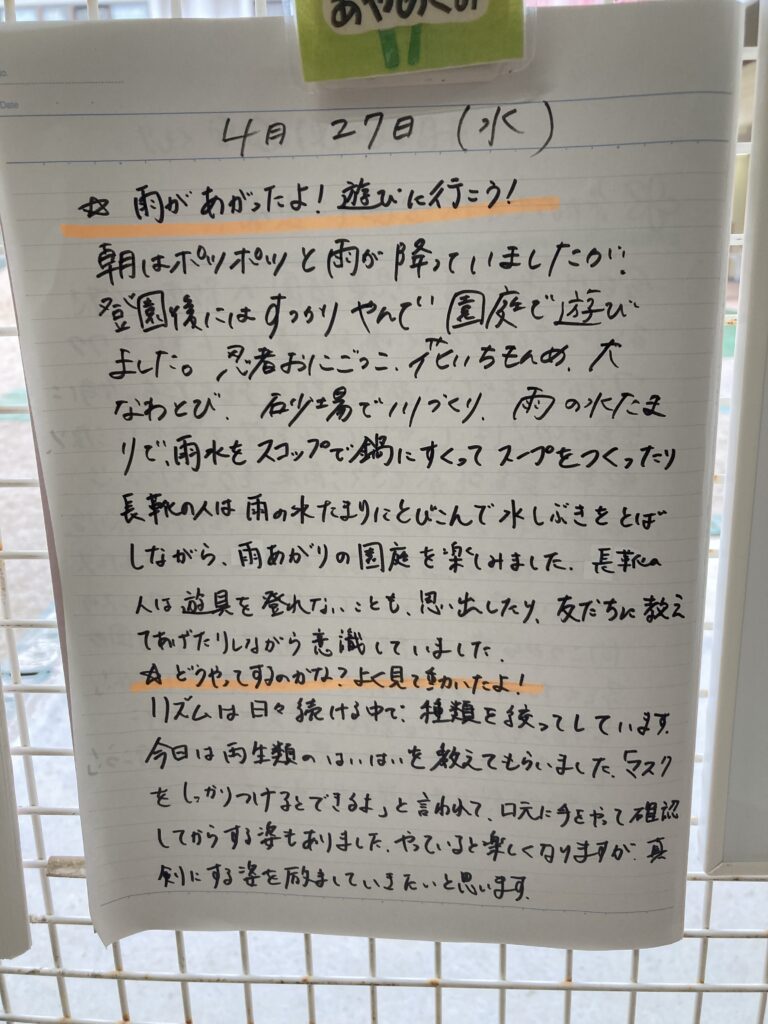 Date
4月 27日 (水)
☆ 雨があがったよ！遊びに行こう！
朝はポツポツと雨が降っていましたが、
登園後にはすっかりやんで園庭で遊び
ました。忍者おにごっこ、花いちもんめ、大
なわとび、石少場で川づくり、雨の水たま
りで、雨水をスコップで鍋にすくってスープをつくったり
長靴の人は雨の水たまりにとびこんで水しぶきをとば
しながら、雨あがりの園庭を楽しみました。長靴の
人は遊具を登れないことも、思い出したり、友だちに教え
てあげたりしながら意識していました。
☆ どうやってするのかな？よく見て動いたよ！
リズムは日々続ける中で、種類を絞ってしています。
今日は両生類のはいはいを教えてもらいました。「マスク
をしっかりつけるとできるよ」と言われて、口元に手をやって確認
してからする姿もありました。やっていると楽しくなりますが、真
剣にする姿を励ましていきたいと思います。